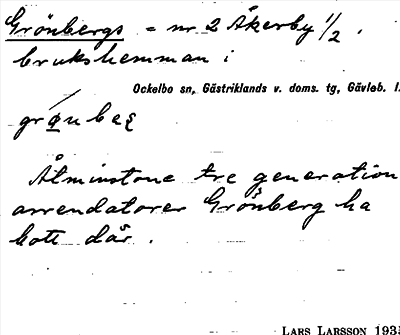 Grönbergs = nr 2 Åkerby 1/2,
brukshemman i
Ockelbo sn, Gästriklands v. doms. tg, Gävleb. l.
Åtminstone tre generation
arrendatorer Grönberg ha
bott där.
LARS LARSSON 193